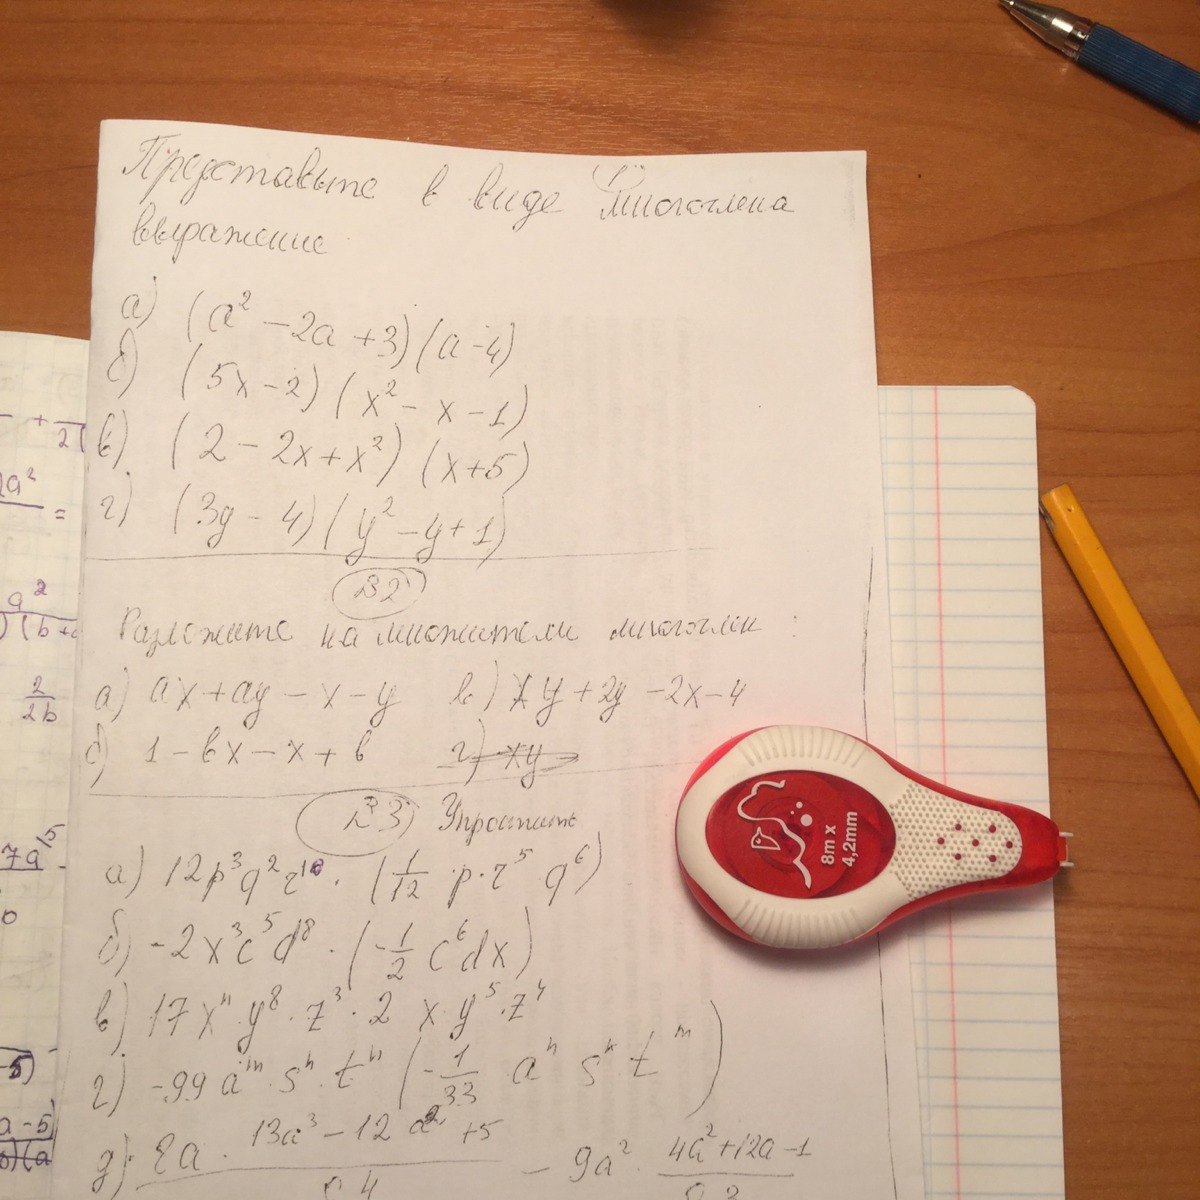 Представьте в виде многочлена
выражение
а) (a² - 2a + 3)(a - 4)
б) (5x - 2)(x² - x - 1)
в) (2 - 2x + x²)(x + 5)
г) (3y - 4)(y² - y + 1)
В2
Разложите на множители многочлен:
а) ax + ay - x - y в) xy + 2y - 2x - 4
б) 1 - bx - x + b г) xy
В3 Упростить
а) 12p³q²r¹⁰ · (1/12 p · r⁵ q⁶)
б) -2x³c⁵d⁸ · (-1/2 c⁶dx)
в) 17xⁿ · y⁸ · z³ · 2 x · y⁵ · z⁴
г) -99aᵐ · sⁿ · tⁿ (-1/33 aⁿ sⁿ tᵐ)
д)
13a³ - 12a² + 5
- 9a² · 4a² + 12a - 1
8m x
4,2mm
+
2(
a²
=
a²
2/2b
7a¹⁵
a - 5